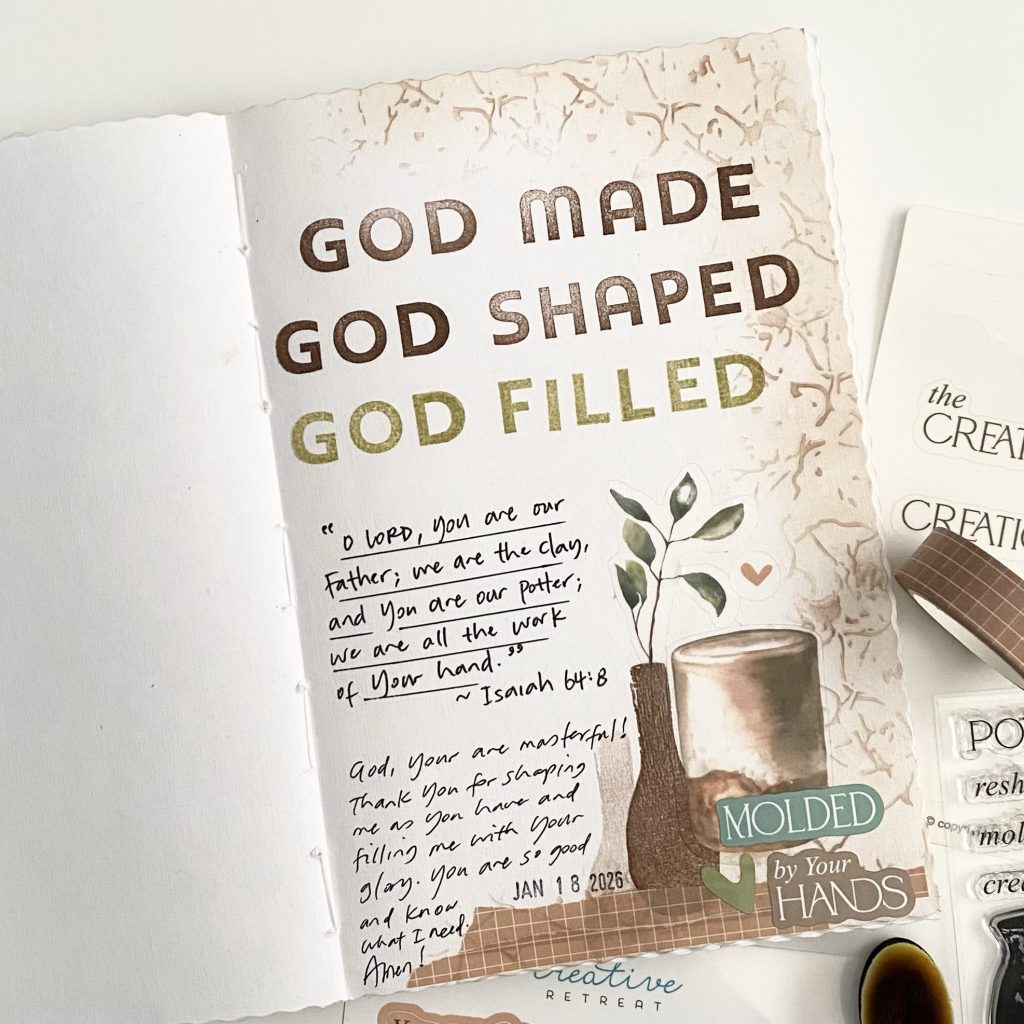 GOD MADE
GOD SHAPED
GOD FILLED
"O LORD, you are our
Father; we are the clay,
and You are our Potter;
we are all the work
of Your hand."
~ Isaiah 64:8
God, your are masterful!
Thank You for shaping
me as You have and
filling me with Your
glory. You are so good
and know
what I need.
Amen!
JAN 18 2026
MOLDED
by Your
HANDS
the
CREAT
CREATIO
PO
resh
© copy
mol
cre
creative
RETREAT